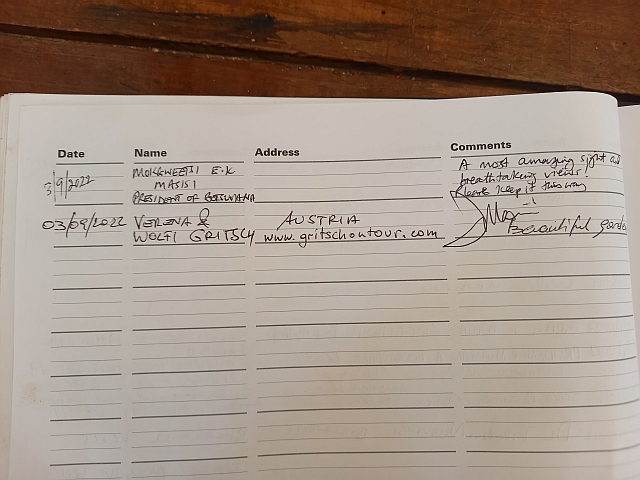 Date Name Address Comments
3/9/2022 MOKGWEETSI E.K A most amazing sight and
MASISI breathtaking views!
PRESIDENT OF BOTSWANA Please keep it this way
03/09/2022 VERENA & AUSTRIA
WOLFI GRITSCH www.gritschontour.com Beautiful garden